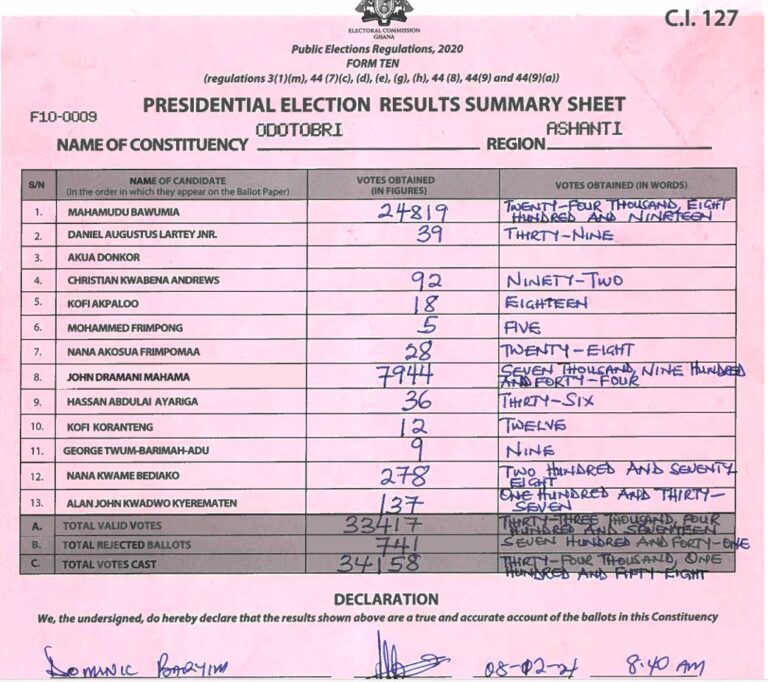 C.I. 127
ELECTORAL COMMISSION
GHANA
Public Elections Regulations, 2020
FORM TEN
(regulations 3(1)(m), 44 (7)(c), (d), (e), (g), (h), 44 (8), 44(9) and 44(9)(a))
PRESIDENTIAL ELECTION RESULTS SUMMARY SHEET
F10-0009
NAME OF CONSTITUENCY ODOTOBRI REGION ASHANTI
S/N NAME OF CANDIDATE (In the order in which they appear on the Ballot Paper) VOTES OBTAINED (IN FIGURES) VOTES OBTAINED (IN WORDS)
1. MAHAMUDU BAWUMIA 24819 TWENTY-FOUR THOUSAND, EIGHT
HUNDRED AND NINETEEN
2. DANIEL AUGUSTUS LARTEY JNR. 39 THIRTY-NINE
3. AKUA DONKOR
4. CHRISTIAN KWABENA ANDREWS 92 NINETY-TWO
5. KOFI AKPALOO 18 EIGHTEEN
6. MOHAMMED FRIMPONG 5 FIVE
7. NANA AKOSUA FRIMPOMAA 28 TWENTY-EIGHT
8. JOHN DRAMANI MAHAMA 7944 SEVEN THOUSAND, NINE HUNDRED
AND FORTY-FOUR
9. HASSAN ABDULAI AYARIGA 36 THIRTY-SIX
10. KOFI KORANTENG 12 TWELVE
11. GEORGE TWUM-BARIMAH-ADU 9 NINE
12. NANA KWAME BEDIAKO 278 TWO HUNDRED AND SEVENTY
EIGHT
13. ALAN JOHN KWADWO KYEREMATEN 137 ONE HUNDRED AND THIRTY-
SEVEN
A. TOTAL VALID VOTES 33417 THIRTY-THREE THOUSAND, FOUR
HUNDRED AND SEVENTEEN
B. TOTAL REJECTED BALLOTS 741 SEVEN HUNDRED AND FORTY-ONE
C. TOTAL VOTES CAST 34158 THIRTY-FOUR THOUSAND, ONE
HUNDRED AND FIFTY EIGHT
DECLARATION
We, the undersigned, do hereby declare that the results shown above are a true and accurate account of the ballots in this Constituency
DOMINIC 8:40 AM